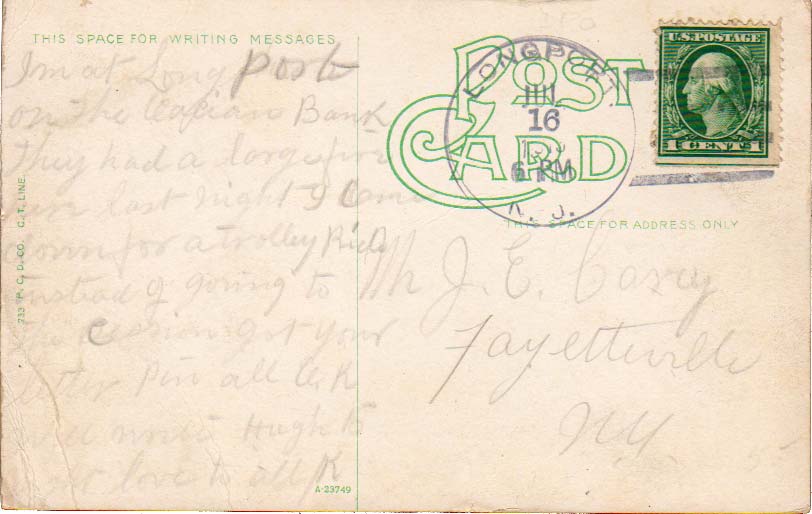 THIS SPACE FOR WRITING MESSAGES
POST CARD
LONGPORT.
JUN
16
6 PM
N. J.
U.S. POSTAGE
1 CENT 1
THIS SPACE FOR ADDRESS ONLY
I'm at Long Port
on the Ocean Bank
They had a fire
last night I Came
down for a trolley Ride
instead of going to
the session got your
letter Pin all O.K
will write Hugh to
love to all K
Mr J. E. Casey
Fayetteville
N.Y.
233 P. C. D. CO. C. T. LINE.
A-23749